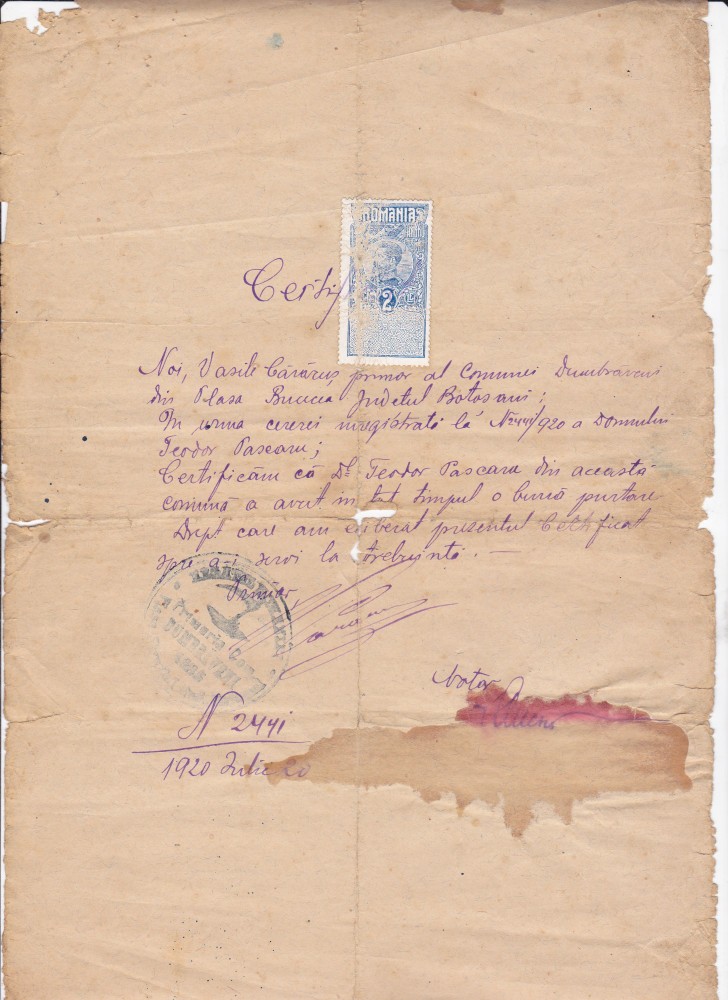 ROMANIA
2
Certif
Noi, Vasile Cărăruș, primar al Comunei Dumbraveni
din Plasa Bucecea Judetul Botosani;
In urma cererei inregistrate la No 2441/920 a Domnului
Teodor Pascaru;
Certificăm că Dl Teodor Pascaru din această
comună a avut in tot timpul o bună purtare
Drept care am eliberat presentul Certificat
spre a-i servi la trebuință. —
Primar,
Primaria Comunei
DUMBRAVENI
Notar
N 2441
1920 Iulie 20